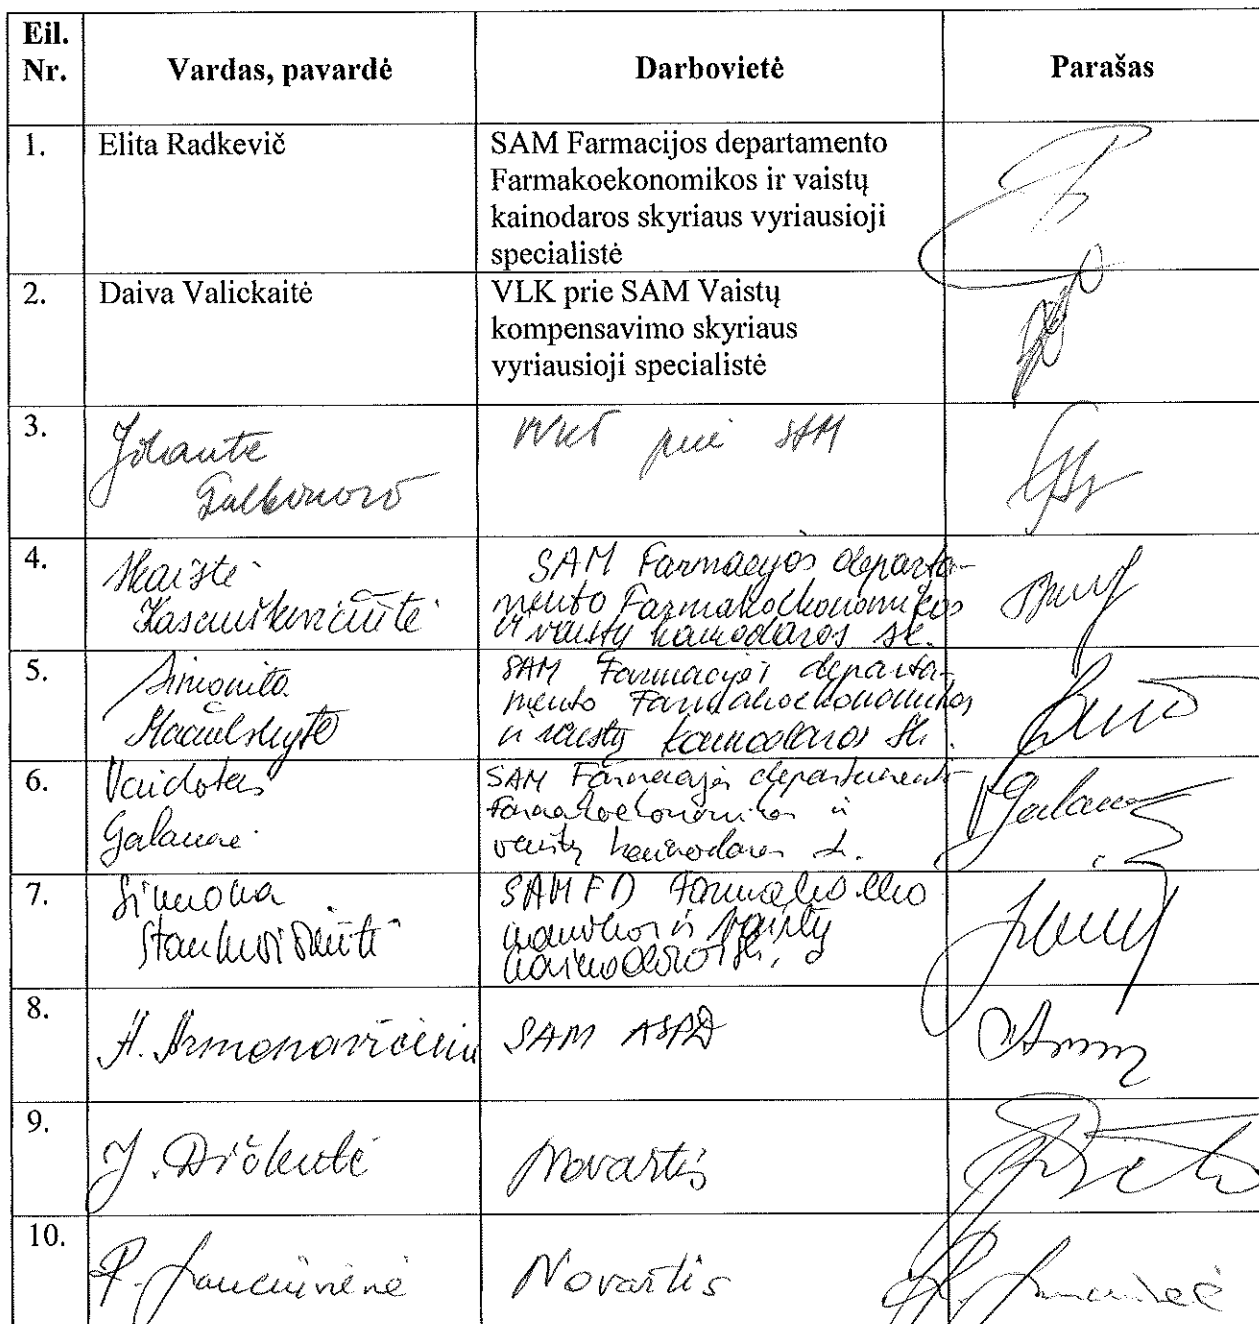 Eil.
Nr.
Vardas, pavardė
Darbovietė
Parašas
1.
Elita Radkevič
SAM Farmacijos departamento
Farmakoekonomikos ir vaistų
kainodaros skyriaus vyriausioji
specialistė
2.
Daiva Valickaitė
VLK prie SAM Vaistų
kompensavimo skyriaus
vyriausioji specialistė
3.
Jolanta
prie SAM
4.
Skaistė
SAM Farmacijos departa-
mento Farmakoekonomikos
ir vaistų kainodaros sk.
5.
Simonita
Mačiulskytė
SAM Farmacijos departa-
mento Farmakoekonomikos
ir vaistų kainodaros sk.
6.
Vaidotas
SAM Farmacijos departamento
Farmakoekonomikos ir
vaistų kainodaros sk.
7.
Simona
Stankevičiūtė
SAM FD Farmakoeko
nomikos ir vaistų
kainodaros sk.
8.
A. Armonavičienė
SAM ASPD
9.
J.
Novartis
10.
R.
Novartis